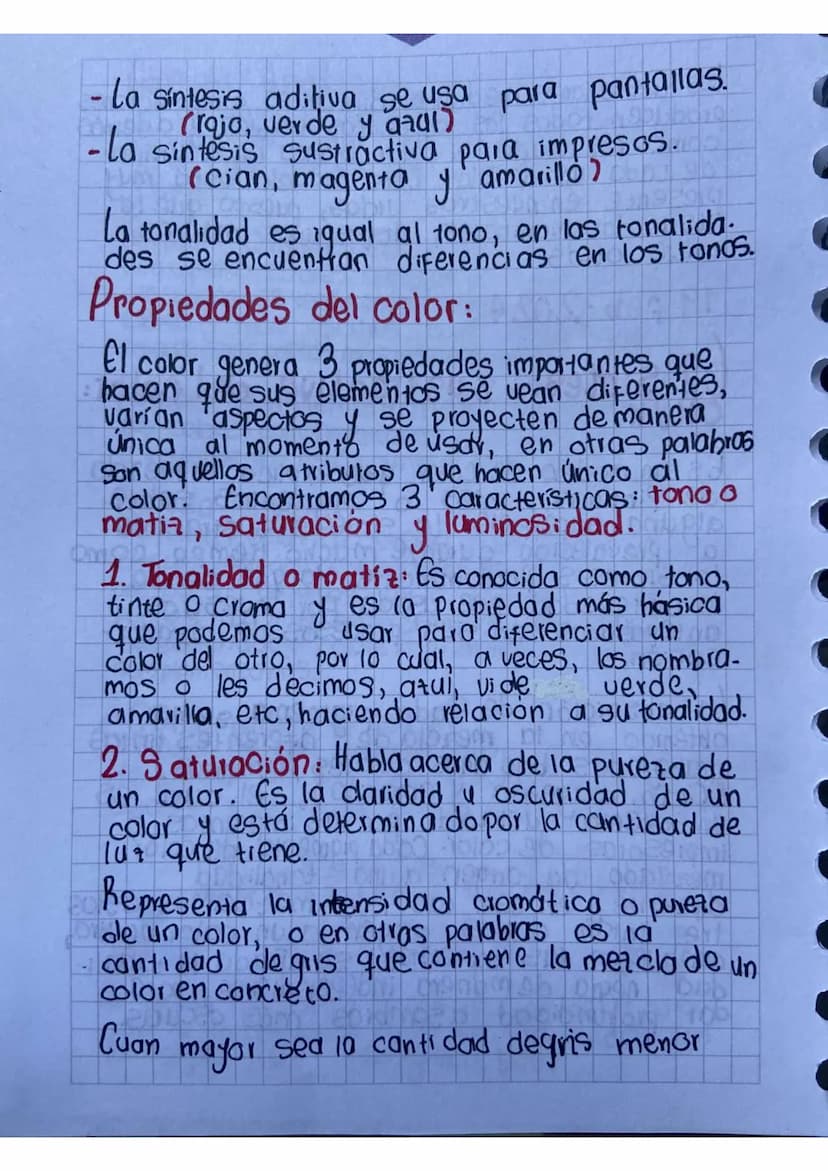 - La síntesis aditiva se usa para pantallas.
(rojo, verde y azul)
- La síntesis sustractiva para impresos.
(cian, magenta y amarillo)
La tonalidad es igual al tono, en las tonalida-
des se encuentran diferencias en los tonos.
Propiedades del color:
El color genera 3 propiedades importantes que
hacen que sus elementos se vean diferentes,
varían aspectos y se proyecten de manera
única al momento de usar, en otras palabras
son aquellos atributos que hacen único al
color. Encontramos 3 características: tono o
matiz, saturación y luminosidad.
1. Tonalidad o matíz: Es conocida como tono,
tinte o croma y es la propiedad más básica
que podemos usar para diferenciar un
color del otro, por lo cual, a veces, los nombra-
mos o les decimos, azul, vide verde,
amarillo, etc, haciendo relación a su tonalidad.
2. Saturación: Habla acerca de la pureza de
un color. Es la claridad u oscuridad de un
color y está determinado por la cantidad de
luz que tiene.
Representa la intensidad cromática o pureza
de un color, o en otras palabras es la
cantidad de gris que contiene la mezcla de un
color en concreto.
Cuan mayor sea la cantidad de gris menor